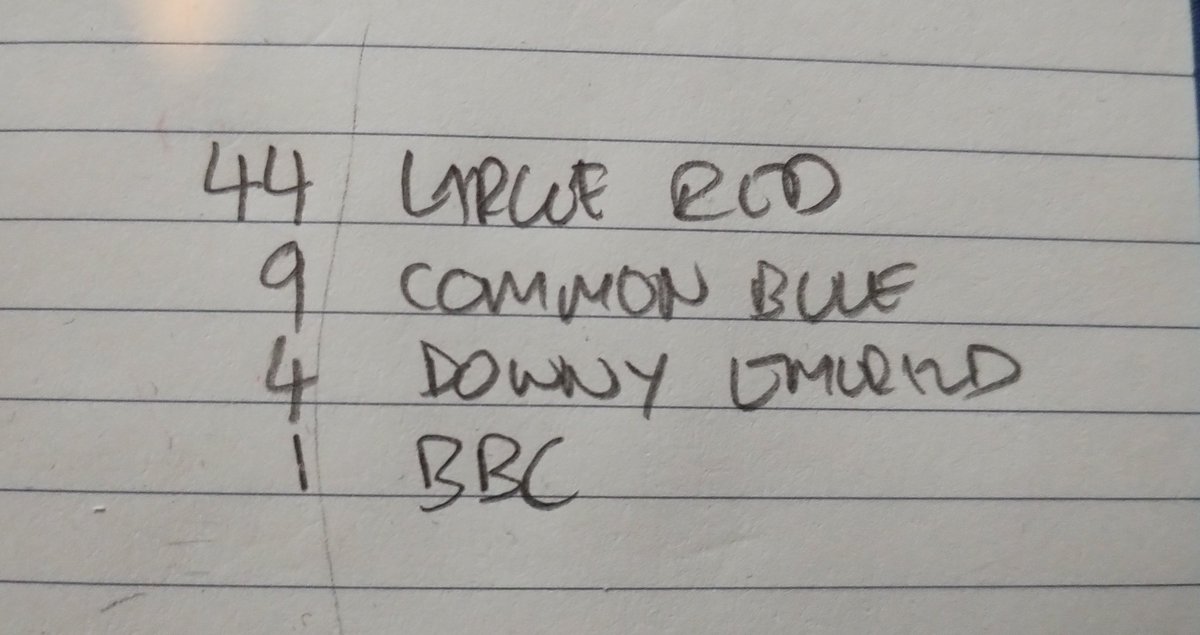 44 LARGE RED
9 COMMON BLUE
4 DOWNY EMERALD
1 BBC